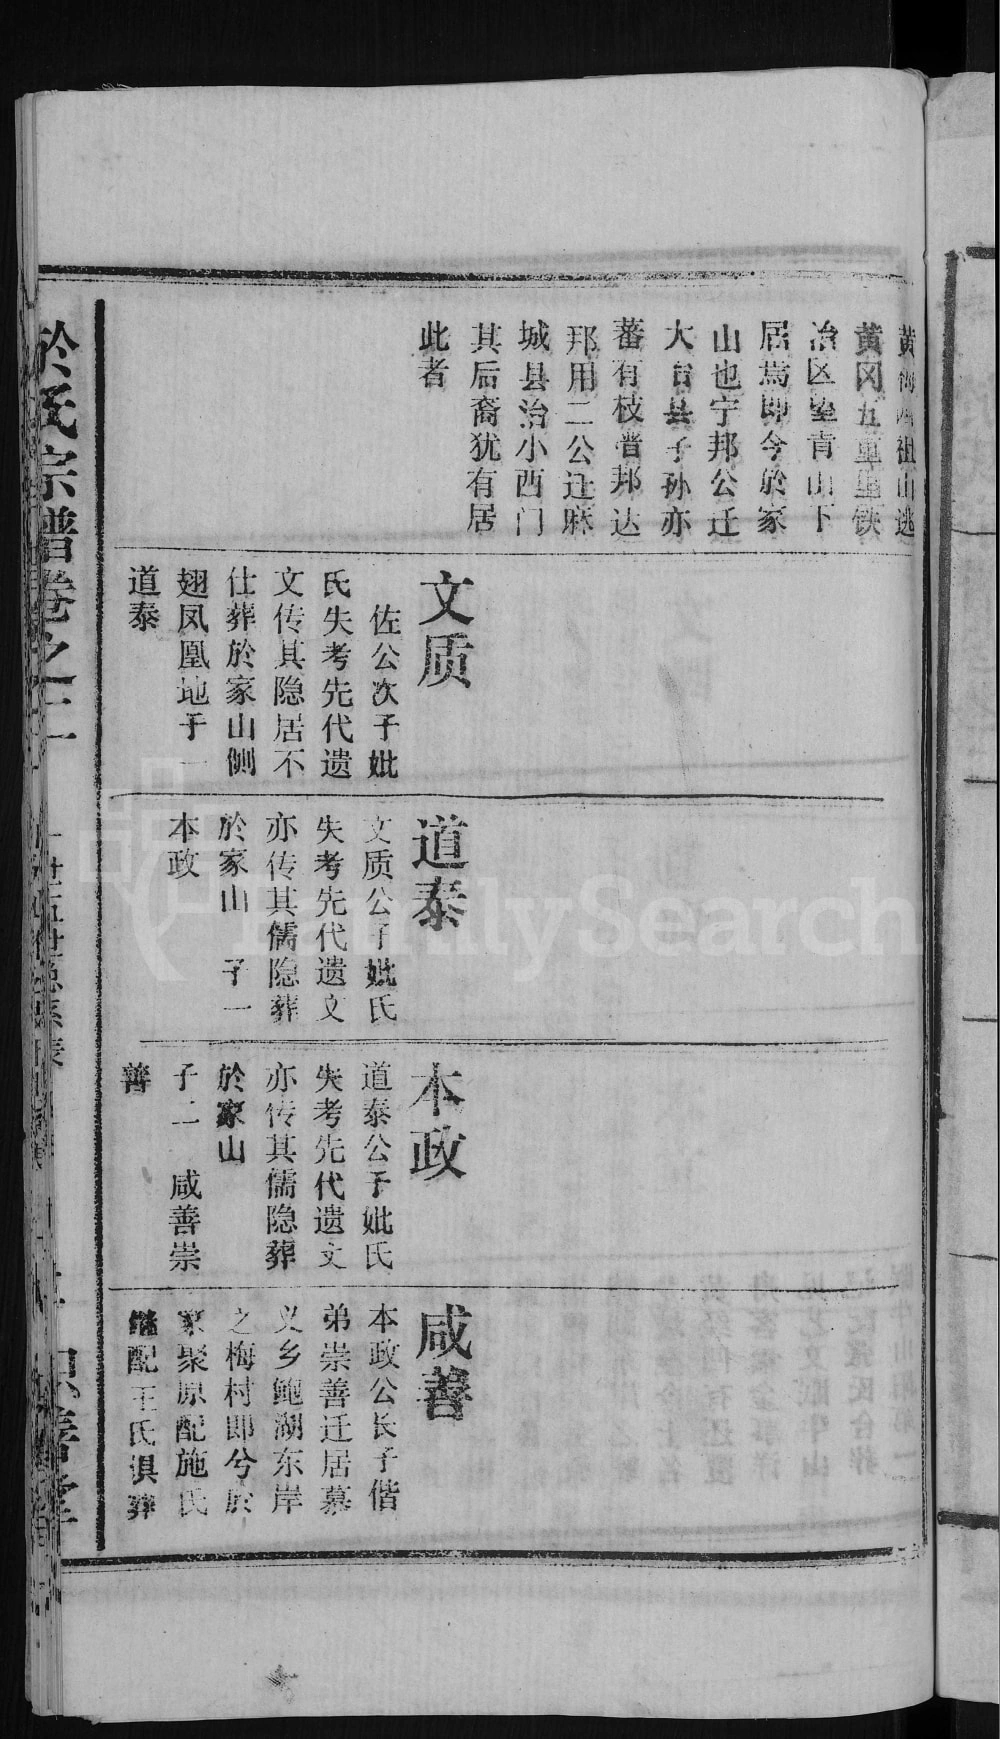 黄梅西祖山逃
黄冈五里里铁
冶区垦青山下
居焉即今於家
山也宁邦公迁
大冶县子孙亦
蕃有枝晋邦达
邦用二公迁麻
城县治小西门
其后裔犹有居
此者
文质
佐公次子妣
氏失考先代遗
文传其隐居不
仕葬於家山侧
翅凤凰地子一
道泰
道泰
文质公子妣氏
失考先代遗文
亦传其儒隐葬
於家山 子一
本政
本政
道泰公子妣氏
失考先代遗文
亦传其儒隐葬
於家山
子二 咸善崇
善
咸善
本政公长子偕
弟崇善迁居慕
义乡鲍湖东岸
之梅村即兮於
家聚原配施氏
继配王氏俱葬
於氏宗谱卷之二
FamilySearch